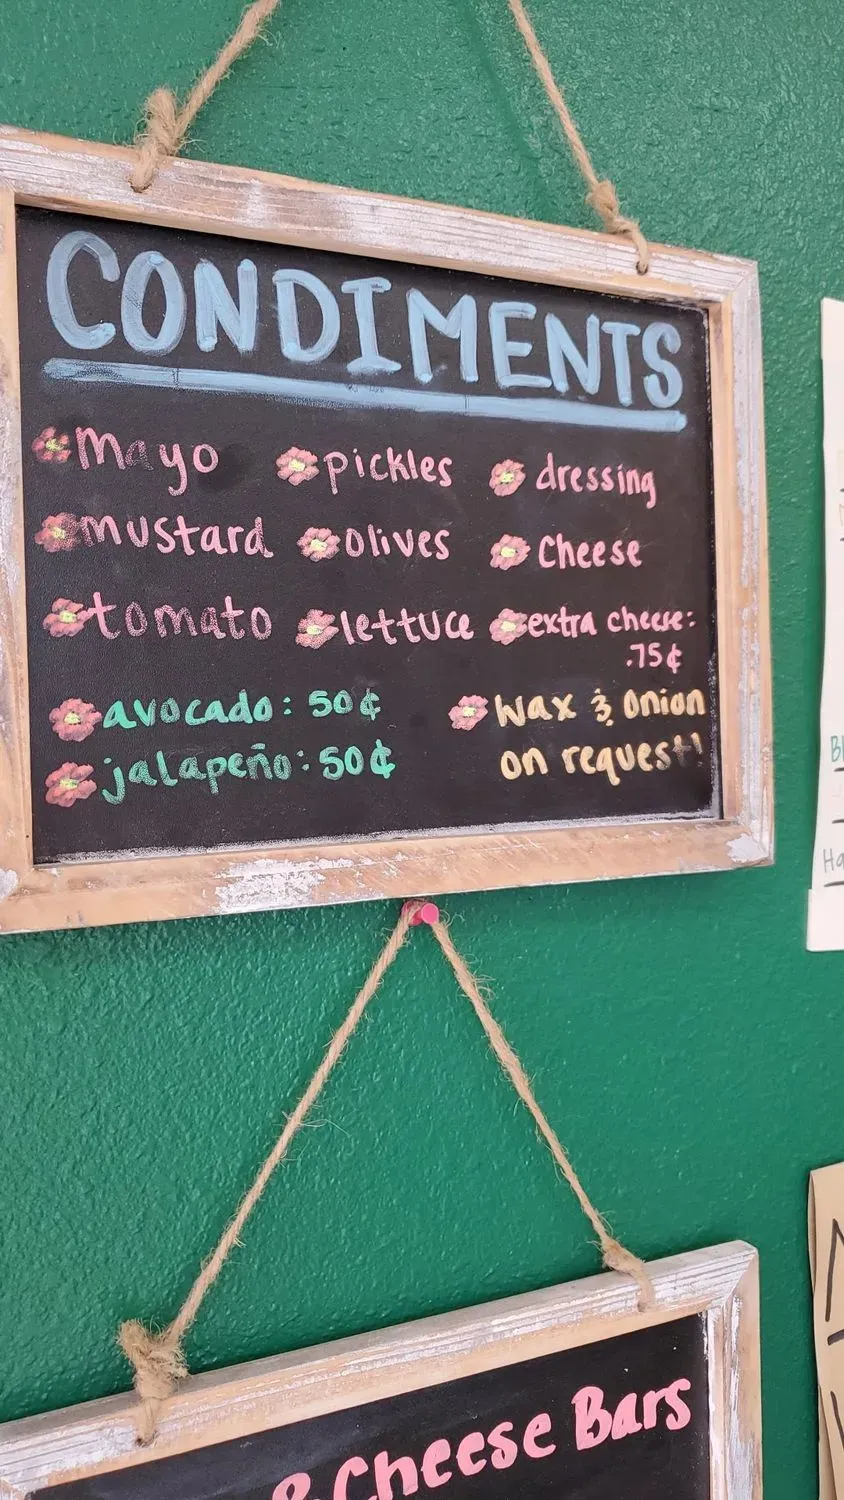 CONDIMENTS
mayo
pickles
dressing
mustard
olives
Cheese
tomato
lettuce
extra cheese:
.75¢
avocado: 50¢
jalapeño: 50¢
Wax & Onion
on request!
& Cheese Bars